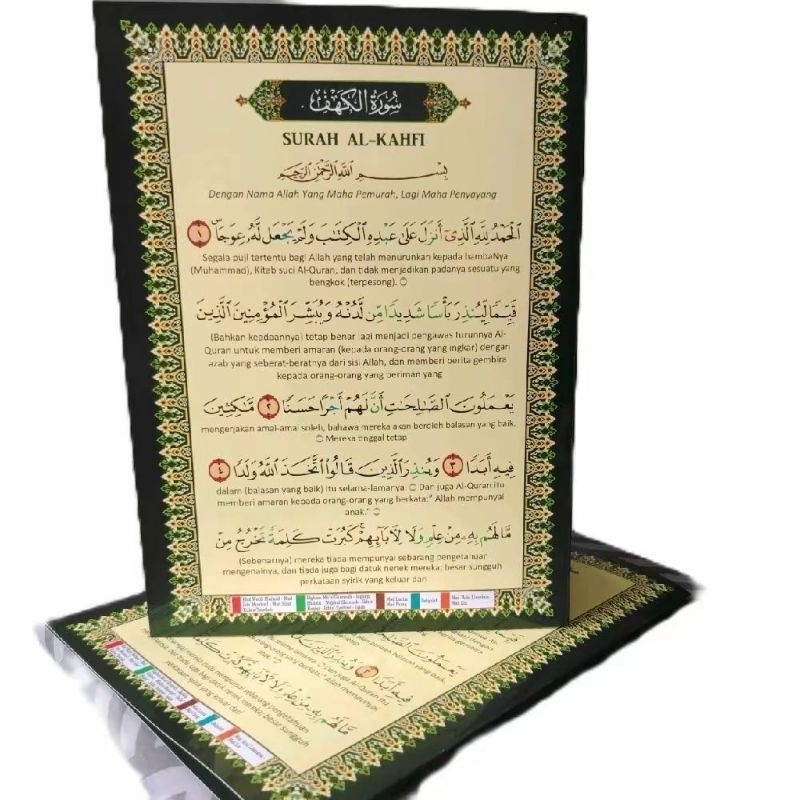 سُورَةُ الكَهْفِ
SURAH AL-KAHFI
بِسْمِ اللَّهِ الرَّحْمَٰنِ الرَّحِيمِ
Dengan Nama Allah Yang Maha Pemurah, Lagi Maha Penyayang
الْحَمْدُ لِلَّهِ الَّذِي أَنزَلَ عَلَىٰ عَبْدِهِ الْكِتَابَ وَلَمْ يَجْعَل لَّهُ عِوَجًا ۜ ١
Segala puji tertentu bagi Allah yang telah menurunkan kepada hambaNya
(Muhammad), Kitab suci Al-Quran, dan tidak menjadikan padanya sesuatu yang
bengkok (terpesong).
قَيِّمًا لِّيُنذِرَ بَأْسًا شَدِيدًا مِّن لَّدُنْهُ وَيُبَشِّرَ الْمُؤْمِنِينَ الَّذِينَ
(Bahkan keadaannya) tetap benar lagi menjadi pengawas turunnya Al-
Quran untuk memberi amaran (kepada orang-orang yang ingkar) dengan
azab yang seberat-beratnya dari sisi Allah, dan memberi berita gembira
kepada orang-orang yang beriman yang
يَعْمَلُونَ الصَّالِحَاتِ أَنَّ لَهُمْ أَجْرًا حَسَنًا ٢ مَّاكِثِينَ
mengerjakan amal-amal soleh, bahawa mereka akan beroleh balasan yang baik.
Mereka tinggal tetap
فِيهِ أَبَدًا ٣ وَيُنذِرَ الَّذِينَ قَالُوا اتَّخَذَ اللَّهُ وَلَدًا ٤
dalam (balasan yang baik) itu selama-lamanya. Dan juga Al-Quran itu
memberi amaran kepada orang-orang yang berkata:" Allah mempunyai
anak."
مَّا لَهُم بِهِ مِنْ عِلْمٍ وَلَا لِآبَائِهِمْ ۚ كَبُرَتْ كَلِمَةً تَخْرُجُ مِنْ
(Sebenarnya) mereka tiada mempunyai sebarang pengetahuan
mengenainya, dan tiada juga bagi datuk nenek mereka; besar sungguh
perkataan syirik yang keluar dari